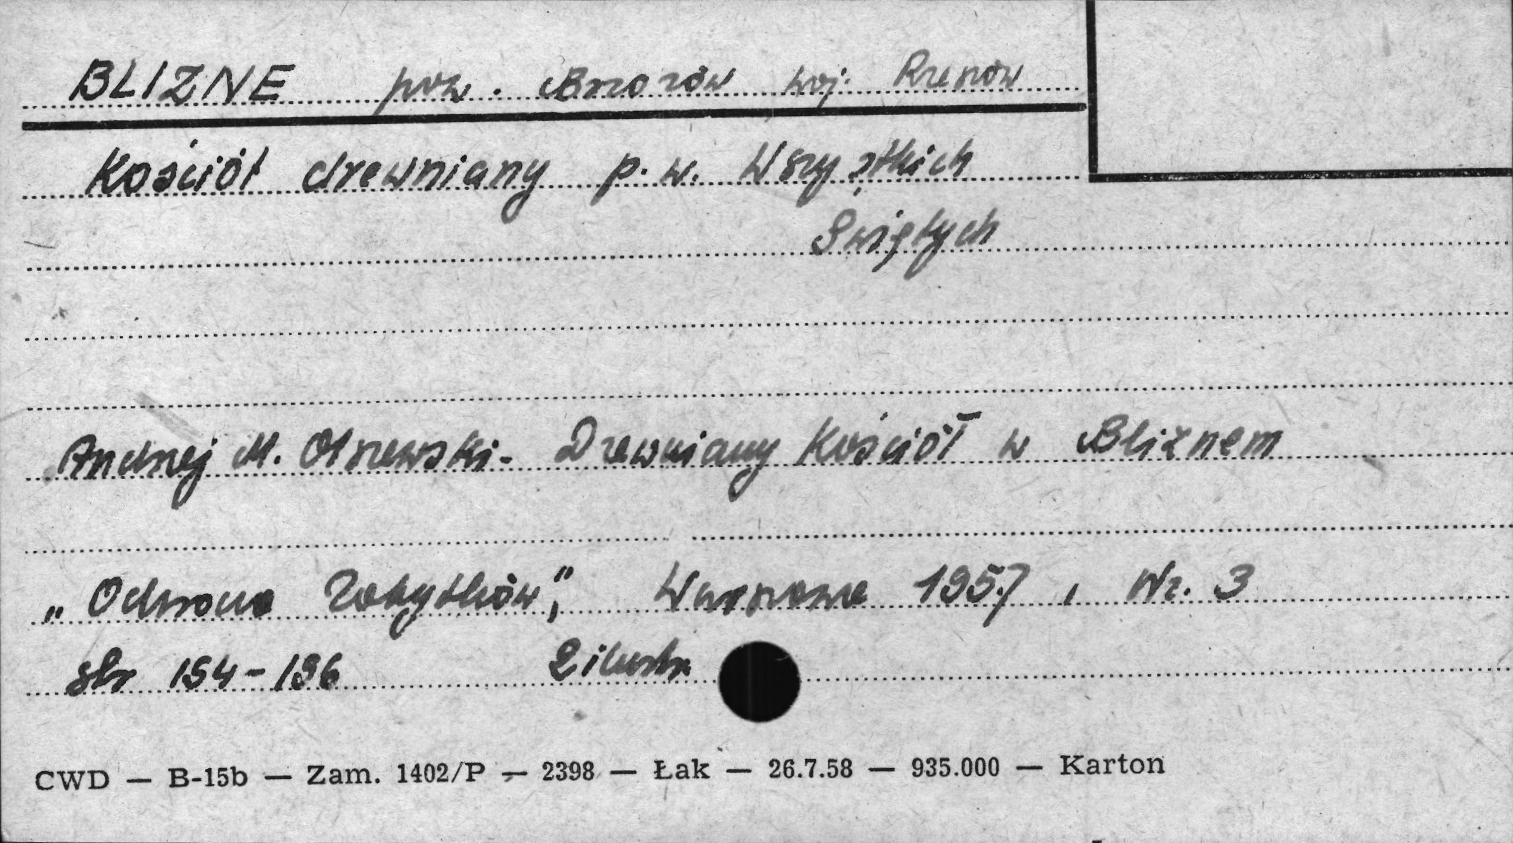 BLIZNE pow. Brzozów woj. Rzeszów
Kościół drewniany p.w. Wszystkich
Świętych
Andrzej M. Olszewski - Drewniany Kościół w Bliznem
„Ochrona Zabytków", Warszawa 1957, Nr. 3
str 194-196 2 ilustr.
CWD — B-15b — Zam. 1402/P — 2398 — Łak — 26.7.58 — 935.000 — Karton